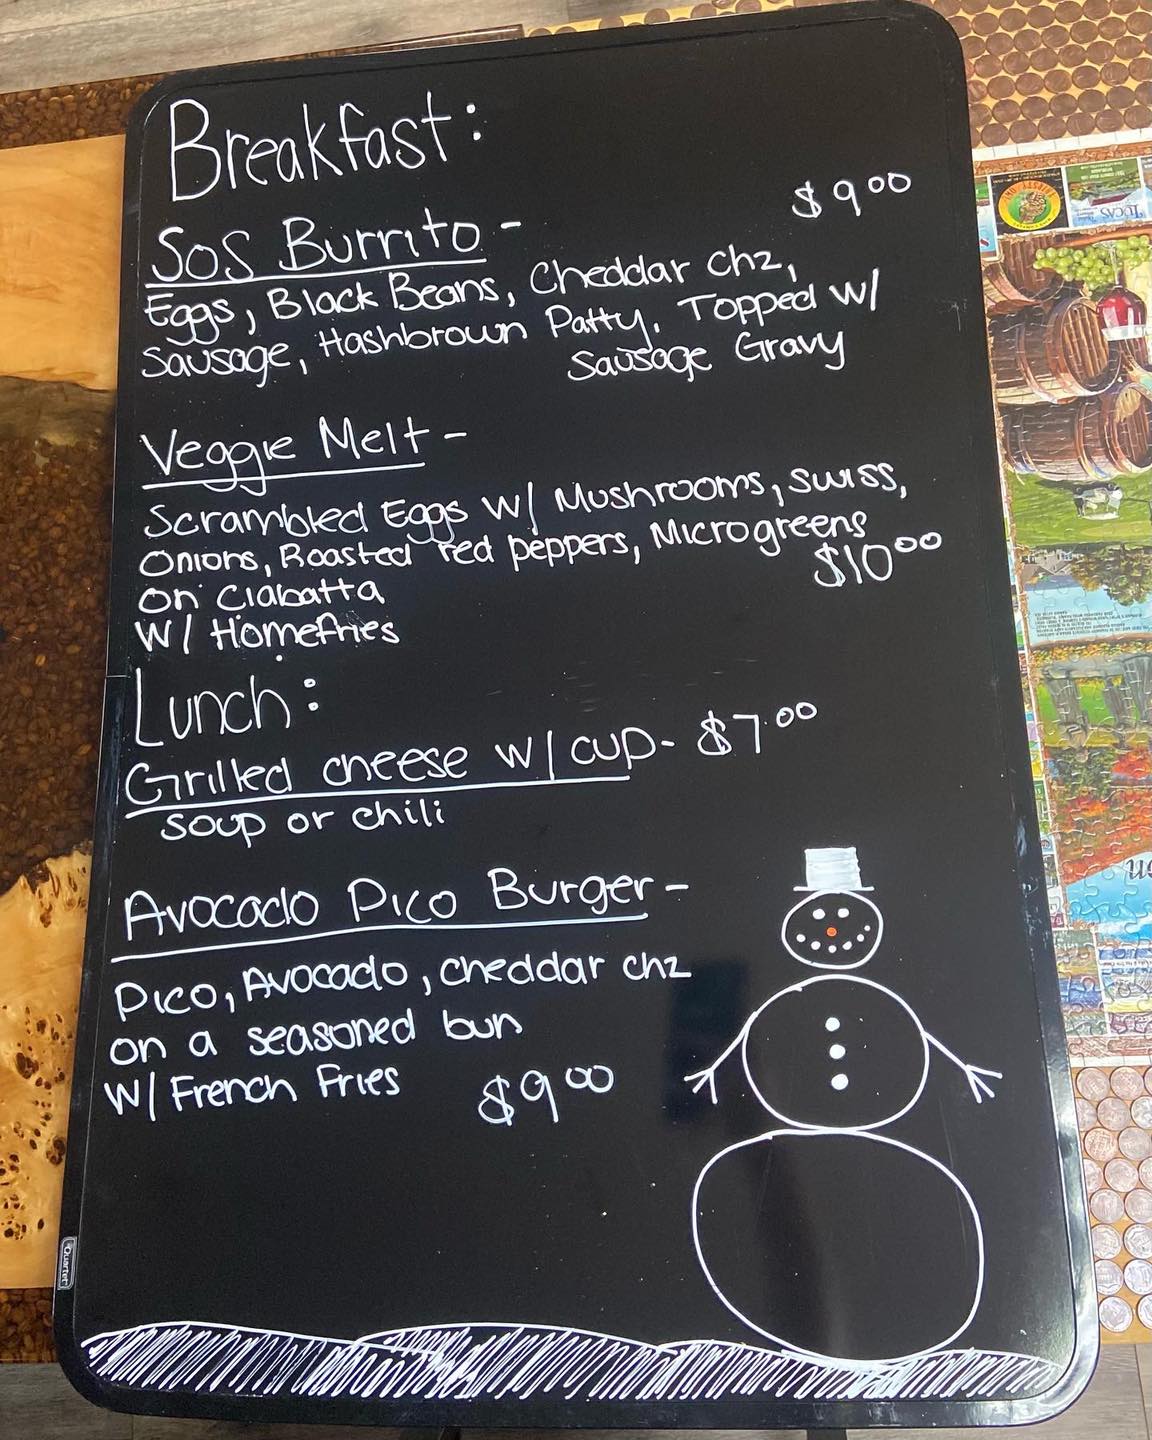 Breakfast:
SOS Burrito - $9.00
Eggs, Black Beans, Cheddar chz,
Sausage, Hashbrown Patty. Topped w/
Sausage Gravy
Veggie Melt -
Scrambled Eggs w/ Mushrooms, swiss,
Onions, Roasted red peppers, Microgreens
on Ciabatta $10.00
w/ Homefries
Lunch:
Grilled cheese w/ cup - $7.00
soup or chili
Avocado Pico Burger -
Pico, Avocado, cheddar chz
on a seasoned bun
w/ French Fries $9.00
Quartet